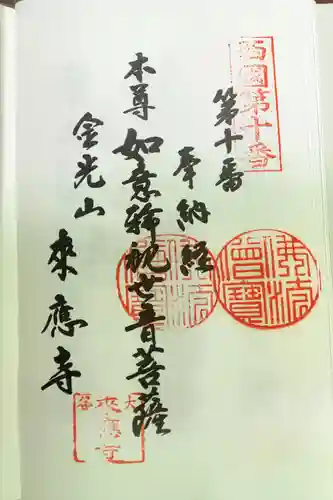 西國第十番
第十番
奉納経
本尊
如意輪観世音菩薩
金光山
來應寺
佛法僧寶
大谷
来應寺